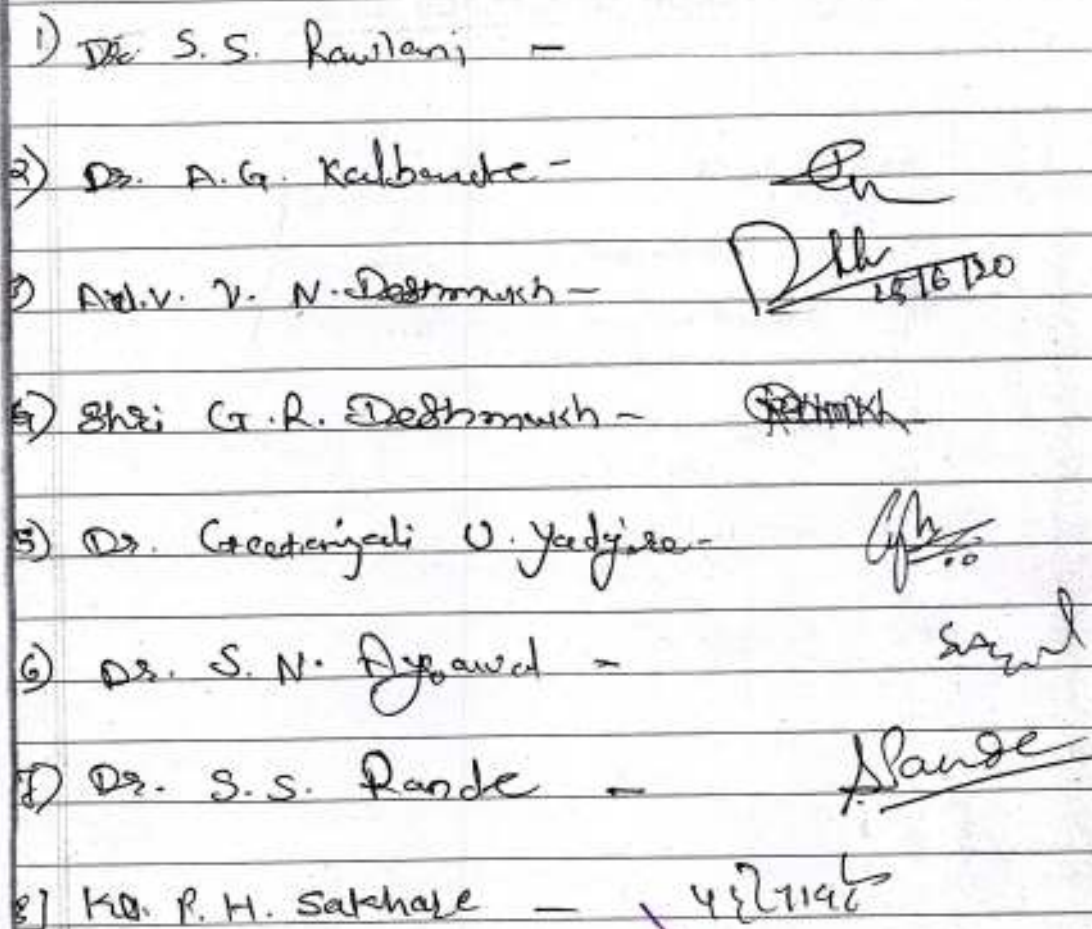 1) Dr. S. S. Rawlani -
2) Dr. A. G. Kalbande -
3) Adv. V. N. Deshmukh - 25/6/20
4) Shri G. R. Deshmukh -
5) Dr. Geetanjali U. Yadgire -
6) Dr. S. N. Agrawal -
7) Dr. S. S. Pande - SPande
8] Ku. P. H. Sakhare -